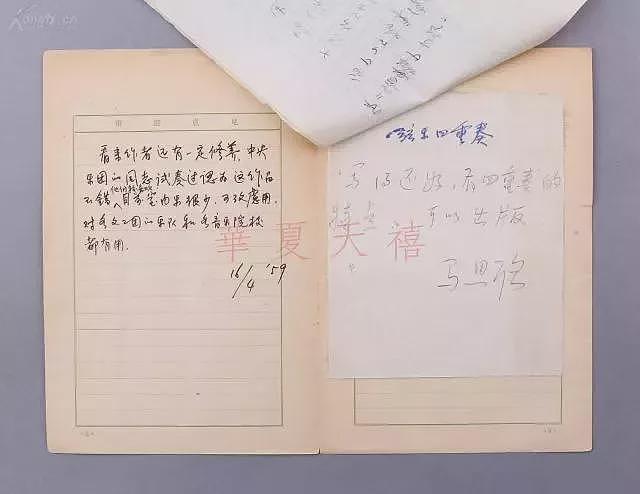 审阅意见
看来作者还有一定修养，中央
乐团的同志试奏过认为这作品
他们很喜欢
不错，目前室内乐很少，可以應用，
对各文工团的乐队和各音乐院校
都有用。
16/4 '59
弦乐四重奏
写得还好，有四重奏的
特点 可以出版
马思聪
華夏天禧